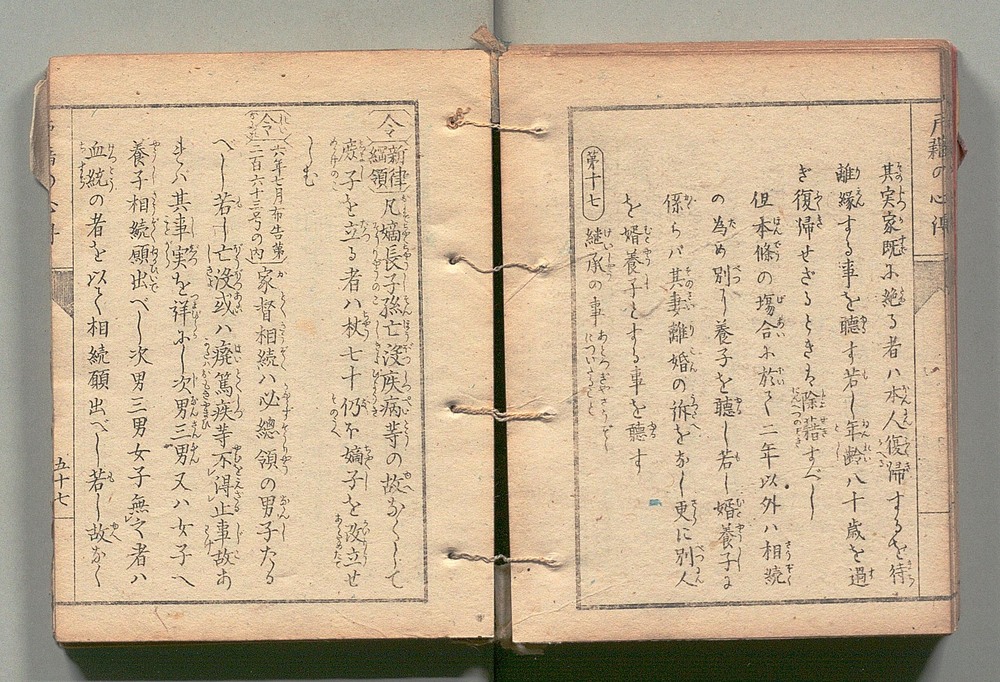 戸籍の心得
其実家既に絶る者ハ本人復帰するを待
離縁する事を聴す若し年齢八十歳を過
き復帰せざるときハ除籍すべし
但本條の場合に於て二年以外ハ相続
の為め別に養子を聴し若し婿養子に
係らバ其妻離婚の訴をなし更に別人
を婿養子とする事を聴す
第十七
継承の事 あとつぎやさうぞくについてすること
令 新律綱領 凡嫡長子孫亡没疾病等の故なくして
庶子を立る者ハ杖七十仍ほ嫡子を改立せ
しむ
令 六年七月布告第二百六十三号の内 家督相続ハ必總領の男子たる
べし若し亡没或ハ癈篤疾等不得止事故あ
らバ其事実を詳にし次男三男又ハ女子へ
養子相続願出べし次男三男女子無之者ハ
血統の者を以て相続願出べし若し故なく
五十七